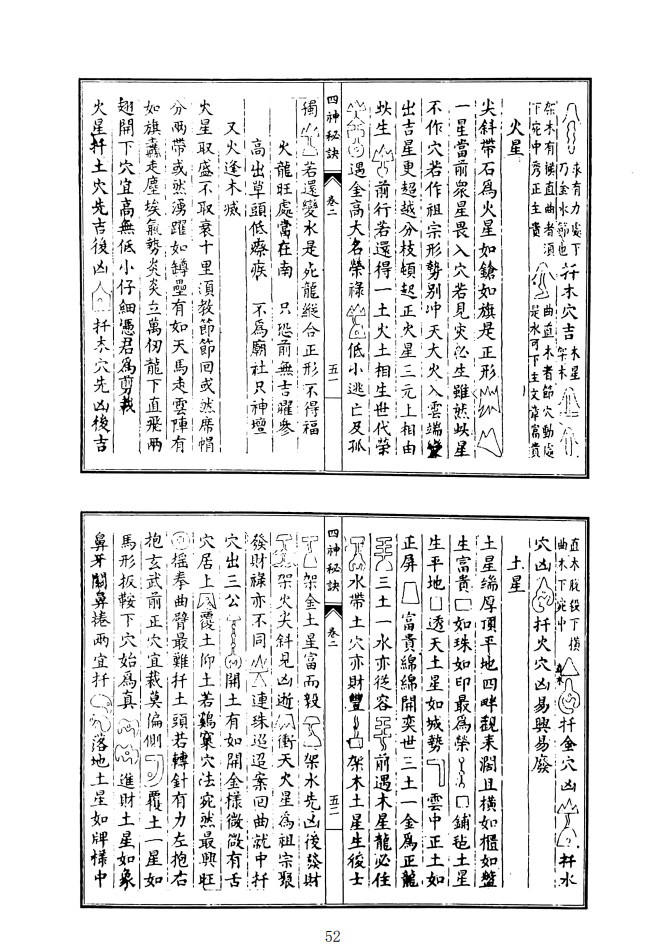 求有力處下
乃金水節也
架木有橫直曲者須
下宛中秀正主貴
扦木穴吉
木星
架木
曲直木者節穴動處
是水可下主文章富貴
火星
尖斜帶石為火星如鎗如旗是正形
一星當前眾星畏入穴若見災必生雖然此星
不作穴若作祖宗形勢別冲天大火入雲端
出吉星更超越分枝頓起正火星三元上相由
此生前行若還得一土火土相生世代榮
遇金高大名榮祿低小逃亡及孤
四神秘訣
卷二
五一
獨若還變水是死龍縱合正形不得福
火龍旺處當在南 只恐前無吉曜參
高出草頭低療瘊 不為廟社只神壇
又火逢木滅
火星取盛不取衰十里須教節節回或然席帽
分兩帶或然湧躍如罇罍有如天馬走雲陣有
如旗纛走塵埃氣勢炎炎立萬仞龍下直飛兩
翅開下穴宜高無低小仔細憑君為剪裁
火星扦土穴先吉後凶扦木穴先凶後吉
直木肢段下橫
曲木下宛中
扦金穴凶
扦水
穴凶扦火穴凶易興易廢
土星
土星端厚頂平地四畔觀來濶且橫如櫃如盤
生富貴如珠如印最為榮鋪毡土星
生平地透天土星如城勢雲中正土如
正屏富貴綿綿開奕世三土一金為正龍
三土一水亦從容前遇木星龍必住
水帶土穴亦財豐架木土星生後士
四神秘訣
卷二
五二
架金土星富而毅架水先凶後發財
架火尖斜見凶逝衝天火星為祖宗猥
發財祿亦不同連珠迢迢案回曲就中扦
穴出三公開土有如開金樣微微有舌
穴居上覆土仰土若鷄窠穴法宛然最興旺
搖拳曲臂最難扦土頭若轉針有力左抱右
抱玄武前正穴宜裁莫偏側覆土一星如
馬形扳鞍下穴始為真進財土星如象
鼻牙關鼻捲兩宜扦落地土星如牌樣中
52